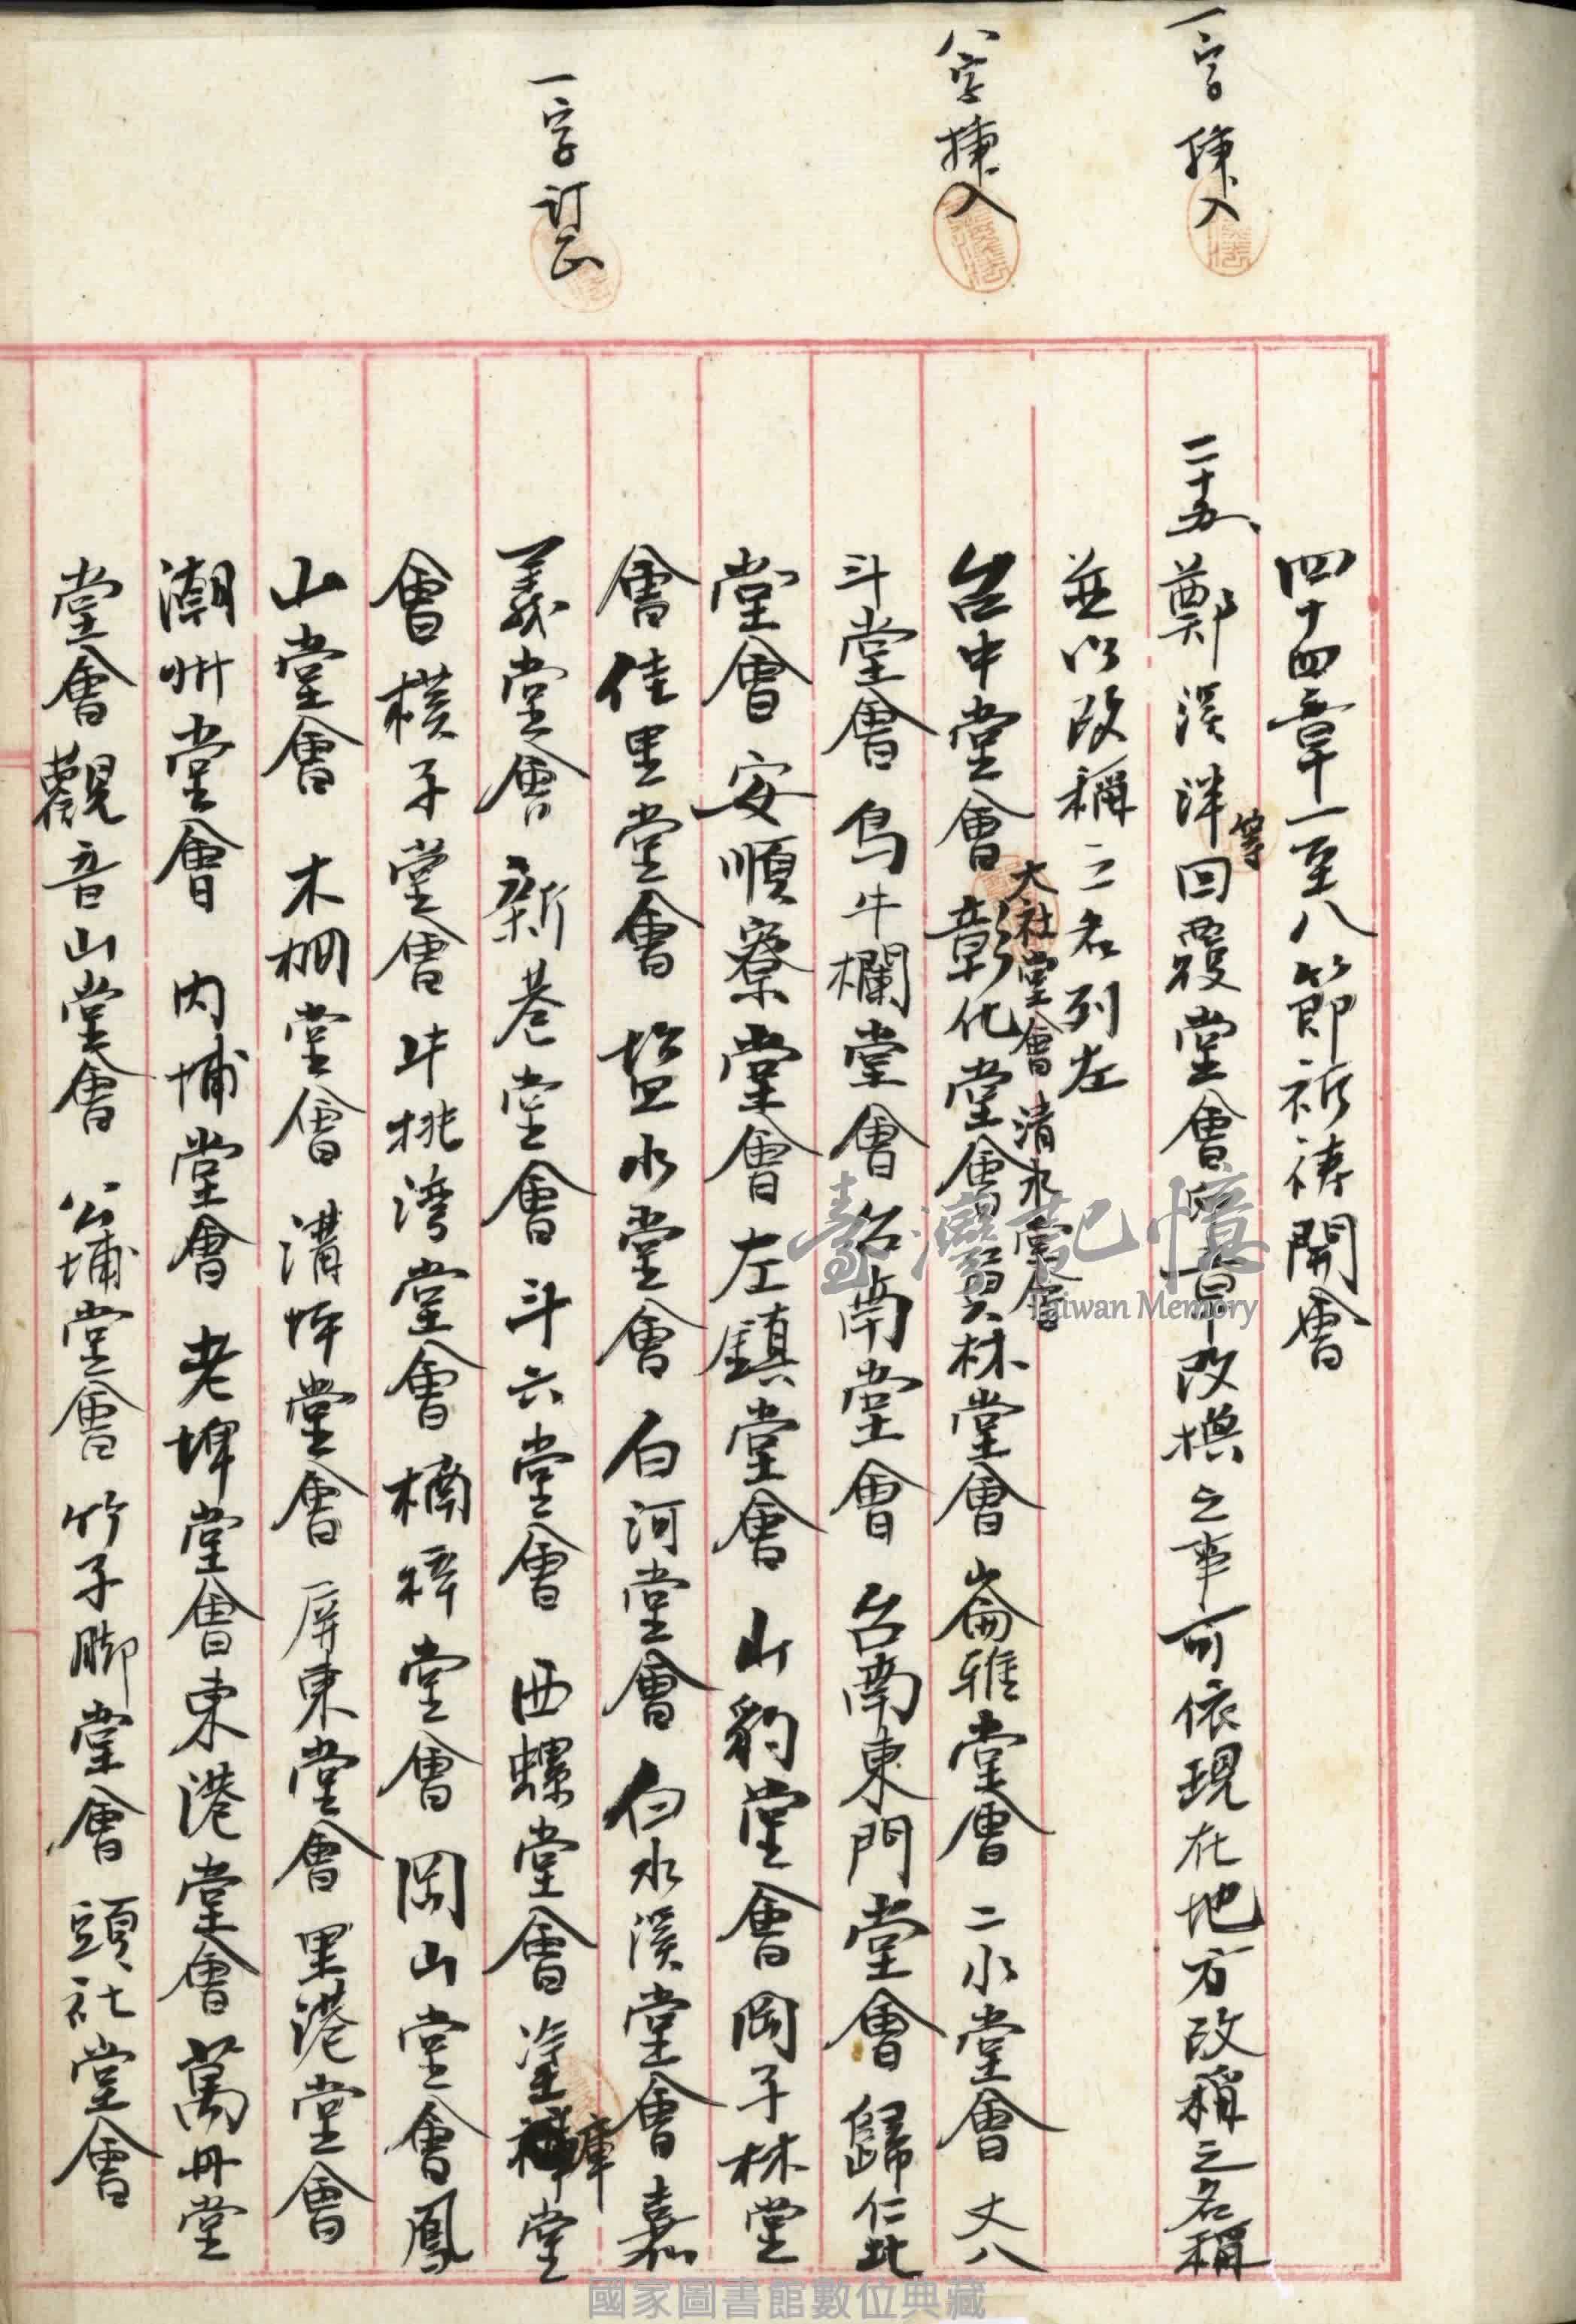 一字揷入
八字揷入
一字訂正
四十四章一至八節祈禱開會
二十五、鄭溪泮等回覆堂會印章改換之事可依現在地方改稱之名稱
並以改稱之名列左
台中堂會 大社堂會 清水堂會 彰化堂會 員林堂會 崙雅堂會 二水堂會 丈八
斗堂會 烏牛欄堂會 台南堂會 台南東門堂會 歸仁北
堂會 安順寮堂會 左鎮堂會 山豹堂會 岡子林堂
會 佳里堂會 塩水堂會 白河堂會 白水溪堂會 嘉
義堂會 新巷堂會 斗六堂會 西螺堂會 塗庫堂
會 樸子堂會 牛挑湾堂會 楠梓堂會 岡山堂會 鳳
山堂會 木柵堂會 溝坪堂會 屏東堂會 里港堂會
潮州堂會 內埔堂會 老埤堂會 東港堂會 萬丹堂
堂會 觀音山堂會 公埔堂會 竹子脚堂會 頭社堂會
臺灣記憶
Taiwan Memory
國家圖書館數位典藏